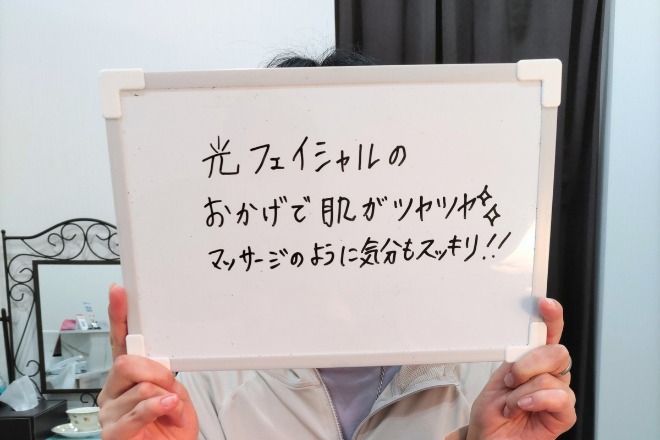 光フェイシャルの
おかげで肌がツヤツヤ✧✧
マッサージのように気分もスッキリ!!